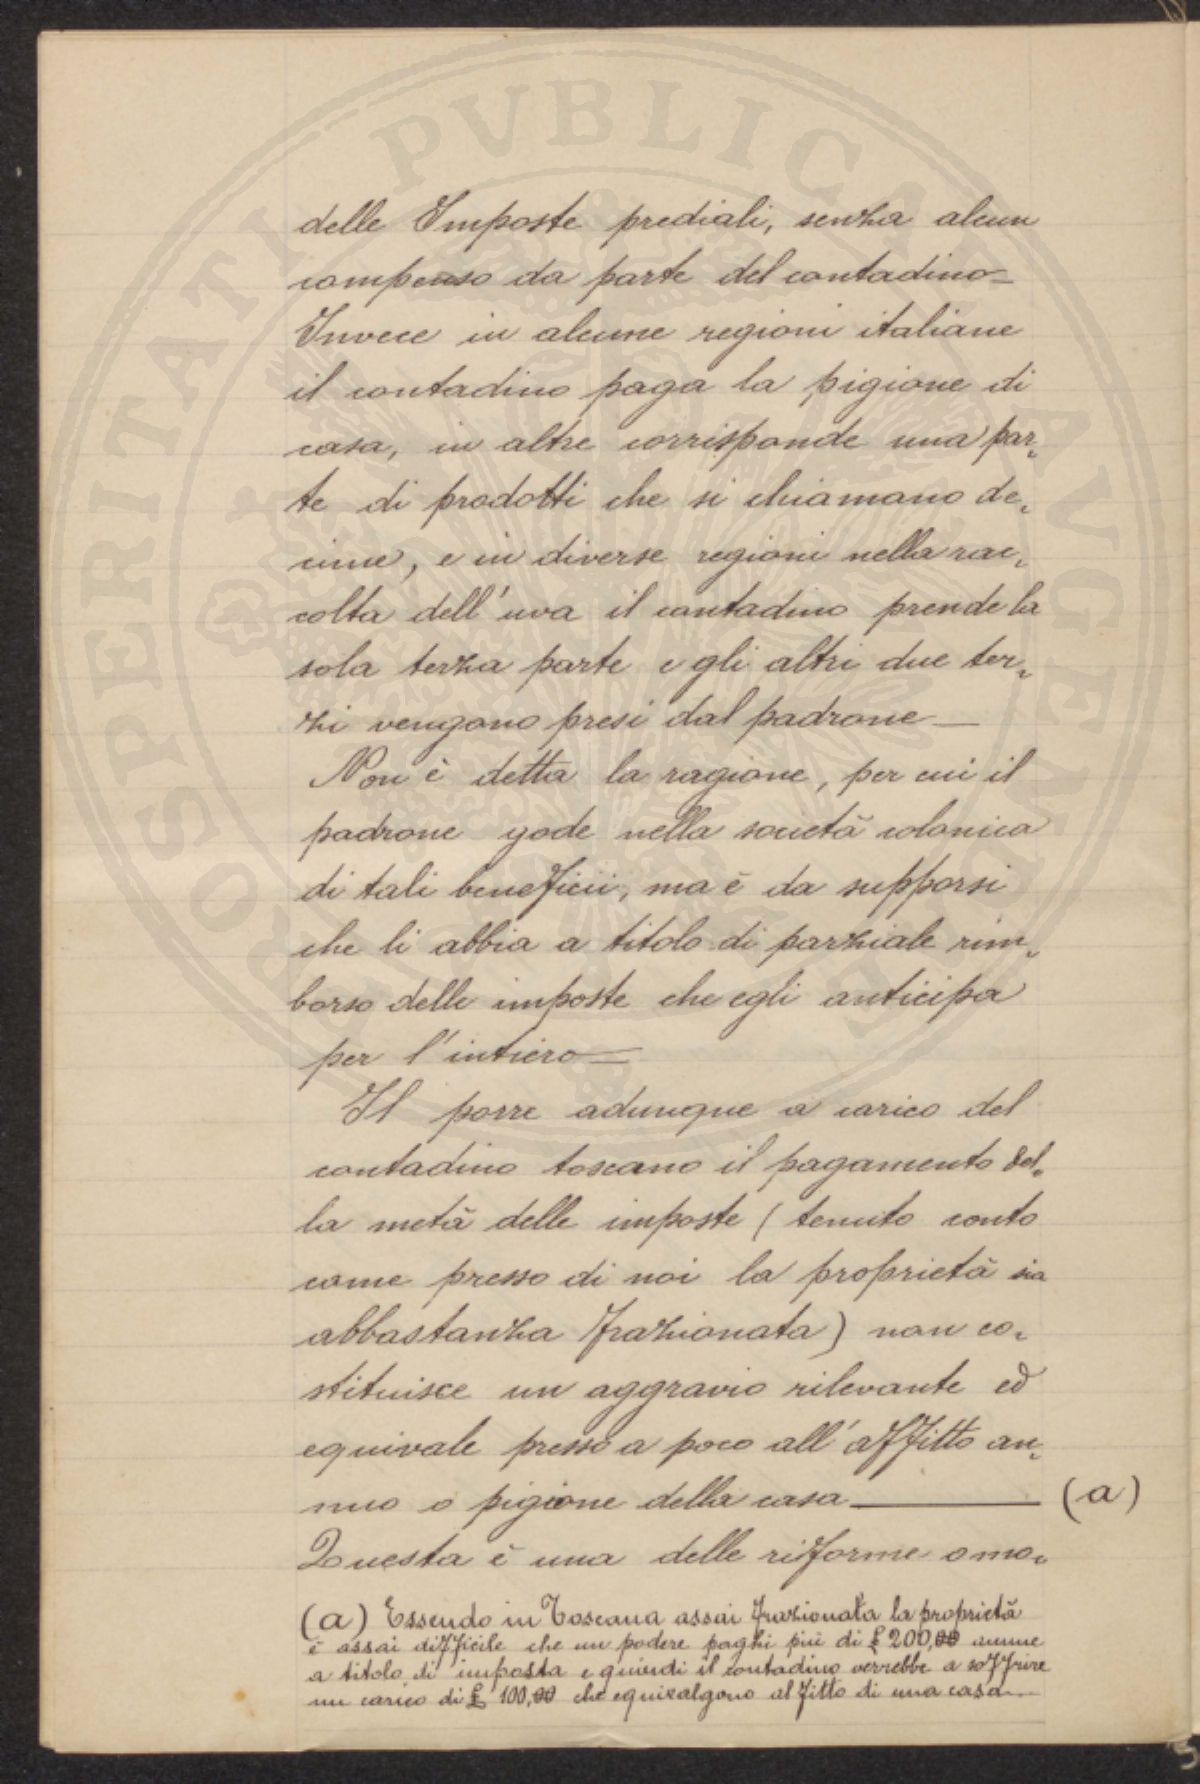 delle Imposte prediali, senza alcun
compenso da parte del contadino_
Invece in alcune regioni italiane
il contadino paga la pigione di
casa, in altre corrisponde una par-
te di prodotti che si chiamano de-
cime, e in diverse regioni nella rac-
colta dell'uva il contadino prende la
sola terza parte e gli altri due ter-
zi vengono presi dal padrone_
Non è detta la ragione, per cui il
padrone gode nella società colonica
di tali beneficii, ma è da supporsi
che li abbia a titolo di parziale rim-
borso delle imposte che egli anticipa
per l'intiero_
Il porre adunque a carico del
contadino toscano il pagamento del-
la metà delle imposte (tenuto conto
come presso di noi la proprietà sia
abbastanza frazionata) non co-
stituisce un aggravio rilevante ed
equivale presso a poco all'affitto an-
nuo o pigione della casa_ (a)
Questa è una delle riforme omo-
(a) Essendo in Toscana assai frazionata la proprietà
è assai difficile che un podere paghi più di £ 200,00 annue
a titolo di imposta e quindi il contadino verrebbe a soffrire
un carico di £ 100,00 che equivalgono al fitto di una casa_
PROSPERITATI PVBLICAE AVGENDAE